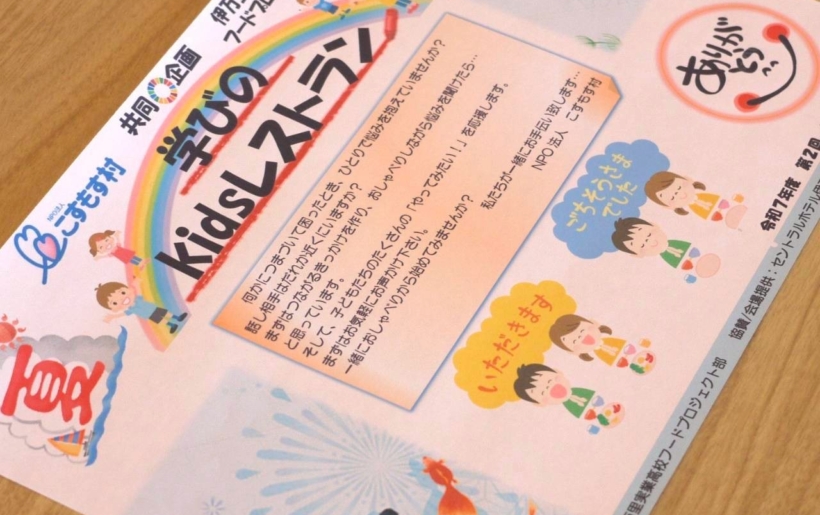 NPO法人
こすもす村
共同
企画
学びの
kidsレストラン
夏
何かにつまづいて困ったとき、ひとりで悩みを抱えていませんか?
話し相手はだれか近くにいますか?
まずはつながるきっかけを作り、おしゃべりしながら悩みを聞けたら…
と思っています。
そして、子どもたちのたくさんの「やってみたい!」を応援します。
まずはお気軽にお声かけ下さい。
一緒におしゃべりから始めてみませんか?
私たちが一緒にお手伝い致します…
NPO法人 こすもす村
ありが
とう
ごちそうさま
でした
いただきます
令和7年度 第2回
協賛/会場提供:セントラルホテル伊
里実業高校フードプロジェクト部